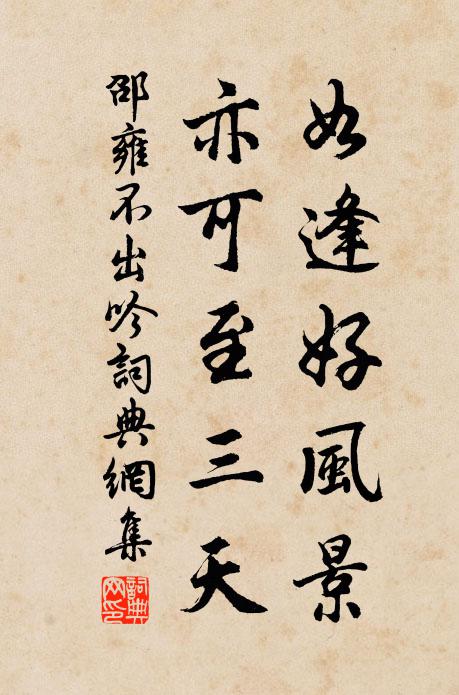 如逢好風景
亦可至三天
邵雍不出吟詞典網集
詞典
网印